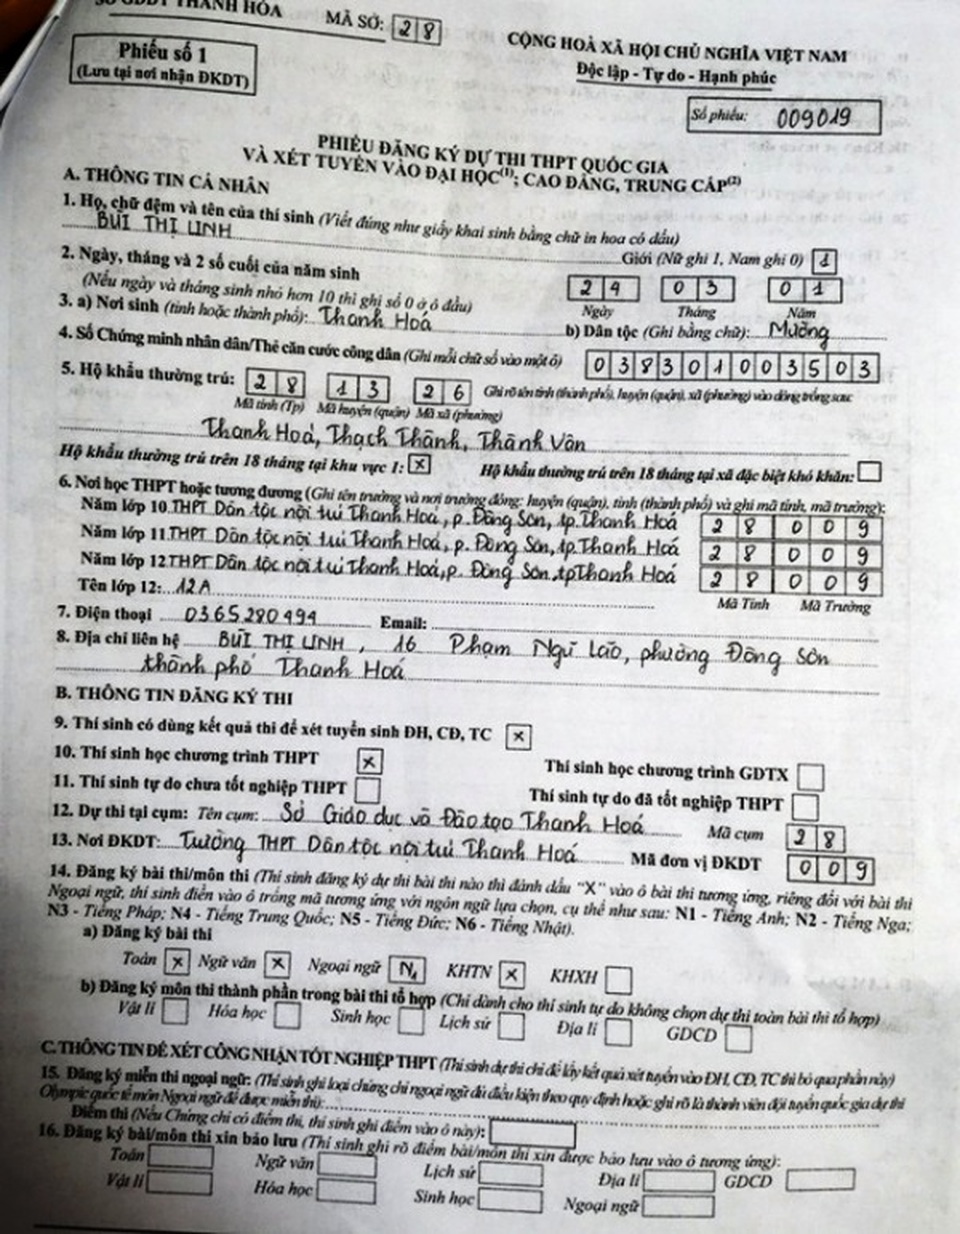 SỞ GDĐT THANH HÓA MÃ SỞ: 2 8
CỘNG HOÀ XÃ HỘI CHỦ NGHĨA VIỆT NAM
Độc lập - Tự do - Hạnh phúc
Phiếu số 1
(Lưu tại nơi nhận ĐKDT)
Số phiếu: 009019
PHIẾU ĐĂNG KÝ DỰ THI THPT QUỐC GIA
VÀ XÉT TUYỂN VÀO ĐẠI HỌC(1); CAO ĐẲNG, TRUNG CẤP(2)
A. THÔNG TIN CÁ NHÂN
1. Họ, chữ đệm và tên của thí sinh (Viết đúng như giấy khai sinh bằng chữ in hoa có dấu)
BÙI THỊ LINH
Giới (Nữ ghi 1, Nam ghi 0) 1
2. Ngày, tháng và 2 số cuối của năm sinh
(Nếu ngày và tháng sinh nhỏ hơn 10 thì ghi số 0 ở ô đầu)
2 9 0 3 0 1
Ngày Tháng Năm
3. a) Nơi sinh (tỉnh hoặc thành phố): Thanh Hoá b) Dân tộc (Ghi bằng chữ): Mường
4. Số Chứng minh nhân dân/Thẻ căn cước công dân (Ghi mỗi chữ số vào một ô) 0 3 8 3 0 1 0 0 3 5 0 3
5. Hộ khẩu thường trú: 2 8 1 3 2 6 Ghi rõ tên tỉnh (thành phố), huyện (quận), xã (phường) vào dòng trống sau:
Mã tỉnh (Tp) Mã huyện (quận) Mã xã (phường)
Thanh Hoá, Thạch Thành, Thành Vân
Hộ khẩu thường trú trên 18 tháng tại khu vực 1: x Hộ khẩu thường trú trên 18 tháng tại xã đặc biệt khó khăn:
6. Nơi học THPT hoặc tương đương (Ghi tên trường và nơi trường đóng: huyện (quận), tỉnh (thành phố) và ghi mã tỉnh, mã trường):
Năm lớp 10 THPT Dân tộc nội trú Thanh Hoá, p. Đông Sơn, tp. Thanh Hoá 2 8 0 0 9
Năm lớp 11 THPT Dân tộc nội trú Thanh Hoá, p. Đông Sơn, tp. Thanh Hoá 2 8 0 0 9
Năm lớp 12 THPT Dân tộc nội trú Thanh Hoá, p. Đông Sơn, tp Thanh Hoá 2 8 0 0 9
Tên lớp 12: 12A Mã Tỉnh Mã Trường
7. Điện thoại 0365280494 Email:
8. Địa chỉ liên hệ BÙI THỊ LINH, 16 Phạm Ngũ Lão, phường Đông Sơn
thành phố Thanh Hoá
B. THÔNG TIN ĐĂNG KÝ THI
9. Thí sinh có dùng kết quả thi để xét tuyển sinh ĐH, CĐ, TC x
10. Thí sinh học chương trình THPT x Thí sinh học chương trình GDTX
11. Thí sinh tự do chưa tốt nghiệp THPT Thí sinh tự do đã tốt nghiệp THPT
12. Dự thi tại cụm: Tên cụm: Sở Giáo dục và Đào tạo Thanh Hoá Mã cụm 2 8
13. Nơi ĐKDT: Trường THPT Dân tộc nội trú Thanh Hoá Mã đơn vị ĐKDT 0 0 9
14. Đăng ký bài thi/môn thi (Thí sinh đăng ký dự thi bài thi nào thì đánh dấu "X" vào ô bài thi tương ứng, riêng đối với bài thi
Ngoại ngữ, thí sinh điền vào ô trống mã tương ứng với ngôn ngữ lựa chọn, cụ thể như sau: N1 - Tiếng Anh; N2 - Tiếng Nga;
N3 - Tiếng Pháp; N4 - Tiếng Trung Quốc; N5 - Tiếng Đức; N6 - Tiếng Nhật).
a) Đăng ký bài thi
Toán x Ngữ văn x Ngoại ngữ N1 KHTN x KHXH
b) Đăng ký môn thi thành phần trong bài thi tổ hợp (Chỉ dành cho thí sinh tự do không chọn dự thi toàn bài thi tổ hợp)
Vật lí Hóa học Sinh học Lịch sử Địa lí GDCD
C. THÔNG TIN ĐỂ XÉT CÔNG NHẬN TỐT NGHIỆP THPT (Thí sinh dự thi chỉ để lấy kết quả xét tuyển vào ĐH, CĐ, TC thì bỏ qua phần này)
15. Đăng ký miễn thi ngoại ngữ: (Thí sinh ghi loại chứng chỉ ngoại ngữ đủ điều kiện theo quy định hoặc ghi rõ là thành viên đội tuyển quốc gia dự thi
Olympic quốc tế môn Ngoại ngữ để được miễn thi):
Điểm thi (Nếu Chứng chỉ có điểm thi, thí sinh ghi điểm vào ô này):
16. Đăng ký bài/môn thi xin bảo lưu (Thí sinh ghi rõ điểm bài/môn thi xin được bảo lưu vào ô tương ứng):
Toán Ngữ văn Lịch sử Địa lí GDCD
Vật lí Hóa học Sinh học Ngoại ngữ